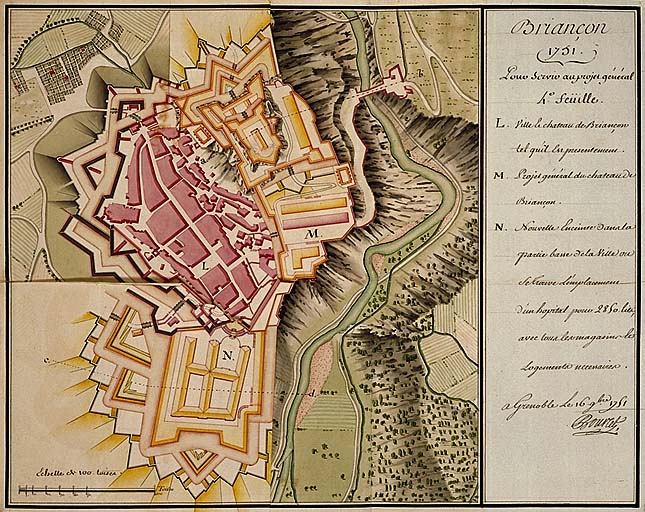 Briançon
1751.
Pour Servir au projet général
4.e feüille.
L. Ville le chateau de Briançon
tel quil Est presentement.
M. Projet général du chateau de
Briançon.
N. Nouvelle Enceinte dans la
partie basse de la Ville ou
Se trouve L'emplacement
d'un hopital pour 2850. lits,
avec tous les magasins le
Logements necessaires.
a Grenoble Le 16 9.bre 1751
b
a
M.
L
N.
c.
d.
Echelle de 100 toises
Toises